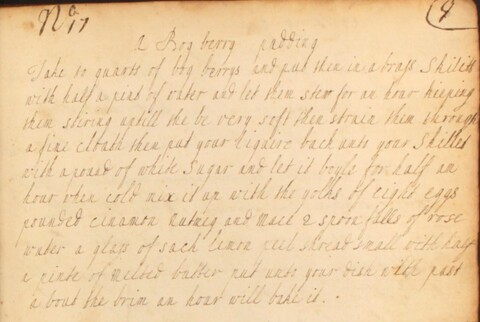 No 17
8
A Bog berry pudding
Take 10 quarts of bog berrys and put them in a brass Skilitt
with half a pint of water and let them stew for an hour keeping
them stiring uptill the be very soft then strain them through
a fine cloath then put your Liquere back unto your Skillet
with a pound of white Sugar and let it boyle for half an
hour when cold mix it up with the yolks of eight eggs
pounded cinamon nutmeg and mace 2 spoon fulls of rose
water a glass of sack lemon peel shread small with half
a pinte of melted butter put unto your dish with past
a bout the brim an hour will bake it . .